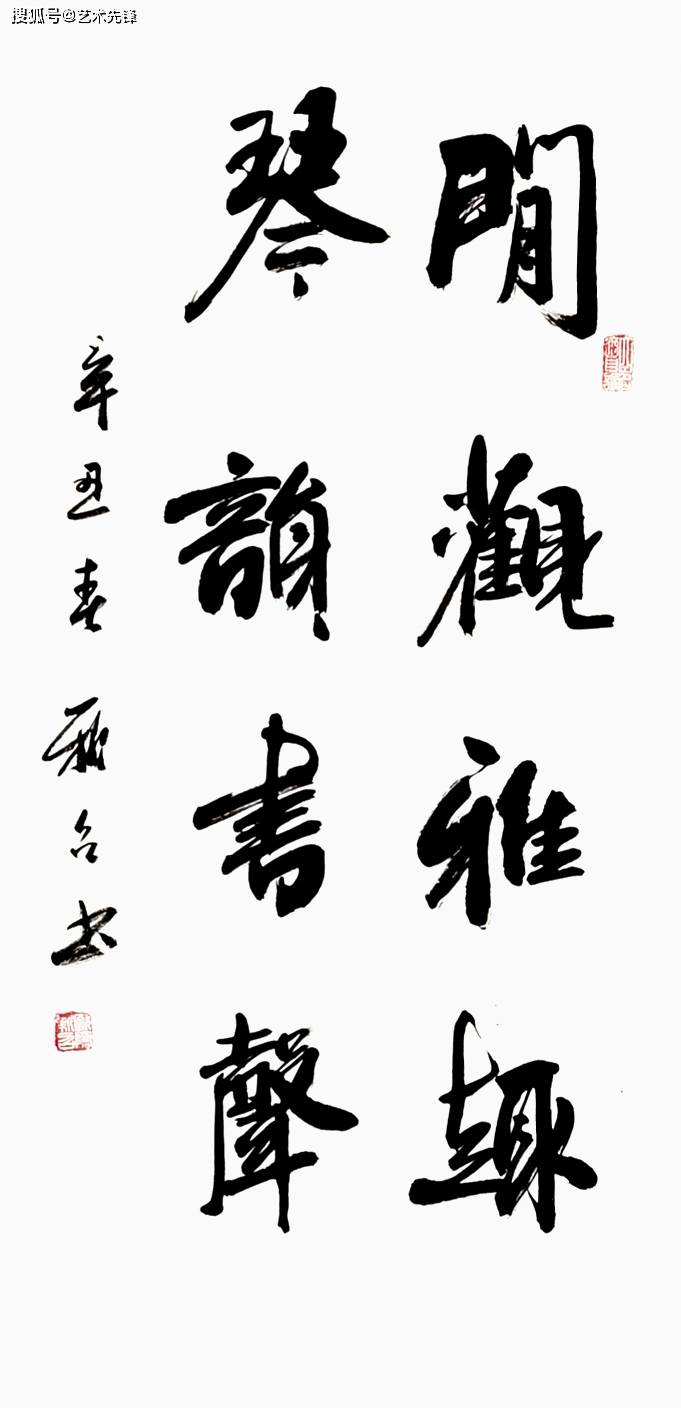 搜狐号@艺术先锋
閒觀雅趣
琴韻書聲
辛丑春 雅名书